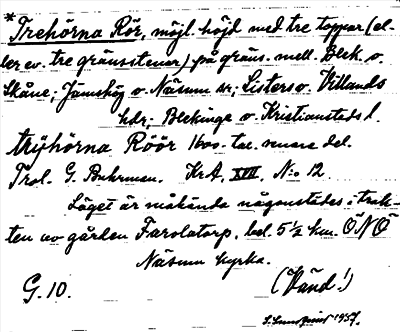 * Trehörna Rör, möjl. höjd med tre toppar (el-
ler ev. tre gränsstenar) på gräns. mell. Blek. o.
Skåne; Jämshög o. Näsum sn; Listers o. Villands
hdr; Blekinge o. Kristianstads l.
trÿhörna Röör 1600-tal. senare del.
Trol. G. Buhrman. KrA, XVII, N:o 12.
Läget är måhända någonstädes i trak-
ten av gården Farolatorp, bel. 5 ½ km. ÖNÖ
Näsum kyrka.
G. 10. (Vänd!)
S. Lundqvist 1957.